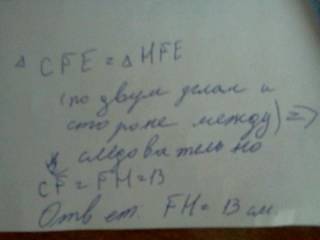 △ CFE = △ HFE
(по двум углам и
стороне между) =>
следовательно
CF = FH = 13
Ответ. FH = 13 см.